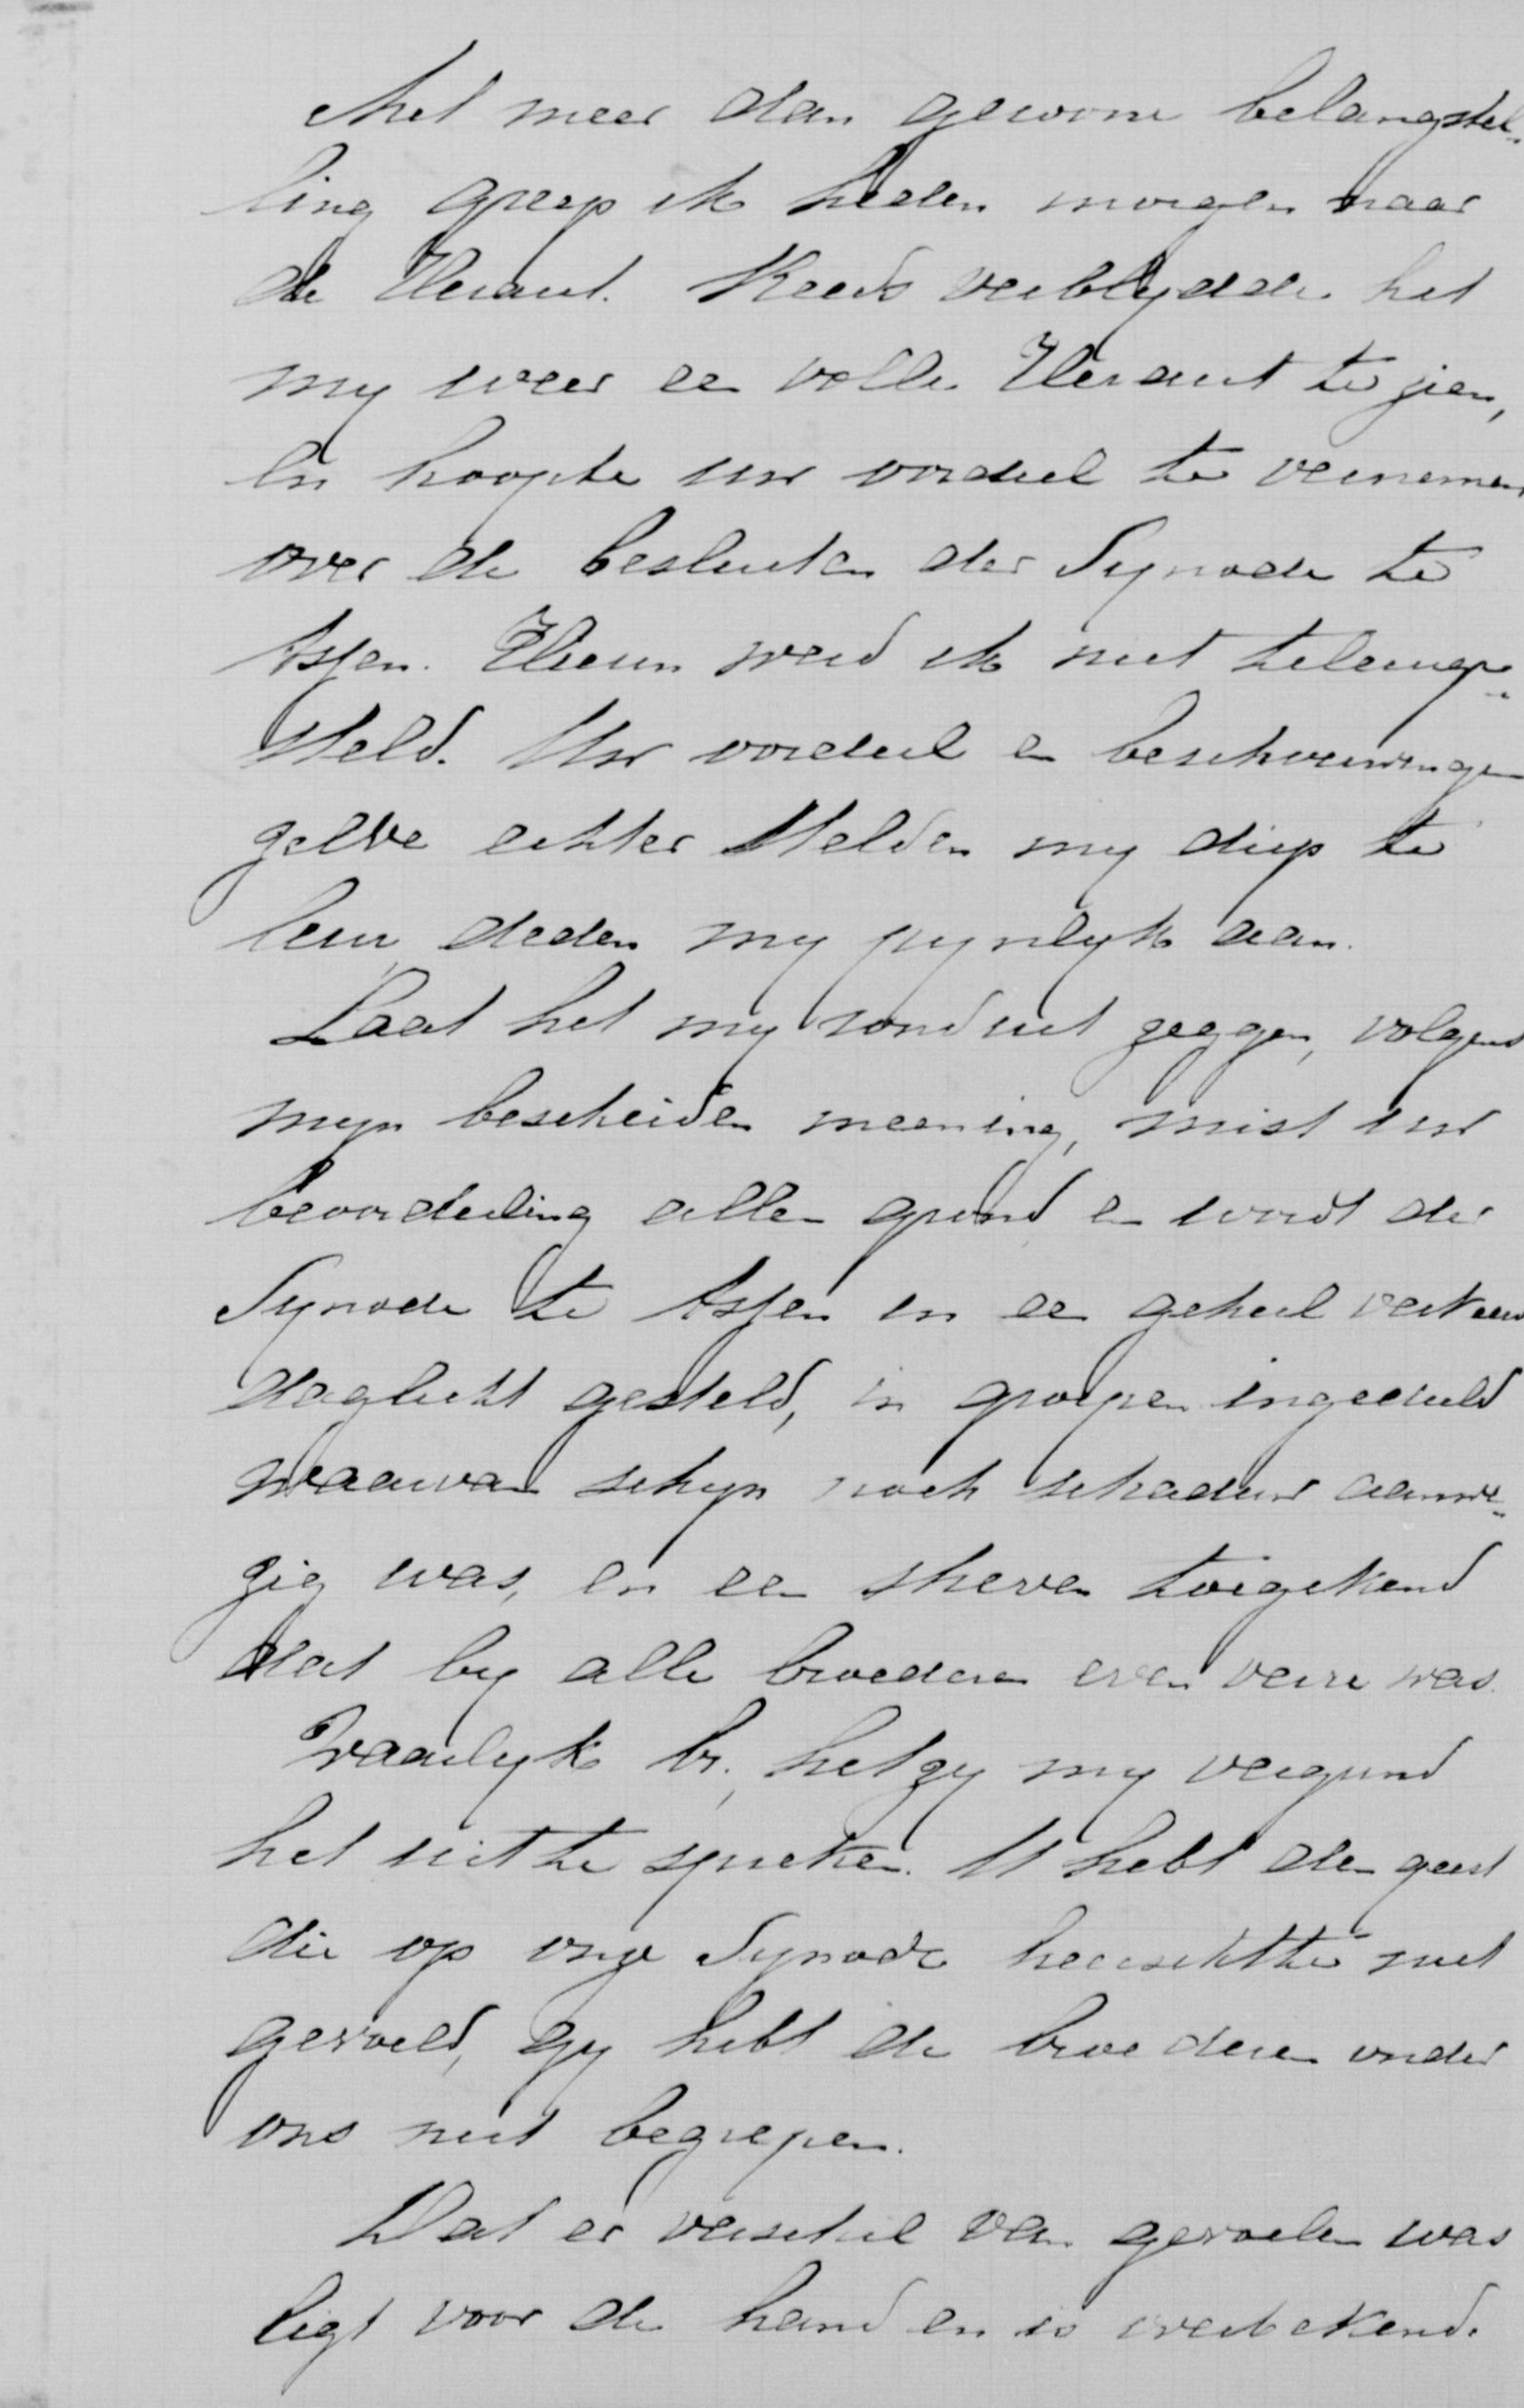 Met meer dan gewone belangstel-
ling greep ik heden morgen naar
de Heraut. Reeds verblydde het
my weer een volle Heraut te zien,
en hoopte uw oordeel te vernemen
over de besluiten der Synode te
Assen. Hierin werd ik niet teleurge-
steld. Uw oordeel en beschouwingen
zelve echter stelden my diep te
leur, deden my pynlyk aan.
Laat het my ronduit zeggen, volgens
myn bescheiden meening, mist uw
beoordeeling allen grond en wordt der
Synode te Assen in een geheel verkeerd
daglicht gesteld, in groepen ingedeeld
waarvan schyn noch schaduw aanwe-
zig was, en een streven toegekend
dat by alle broederen even verre was.
Waarlyk br., het zy my vergund
het uit te spreken. U hebt den geest
die op onze Synode heerschtte niet
gevoeld, gy hebt de broederen onder
ons niet begrepen.
Dat er verschil van gevoelen was
ligt voor de hand en is overbekend.